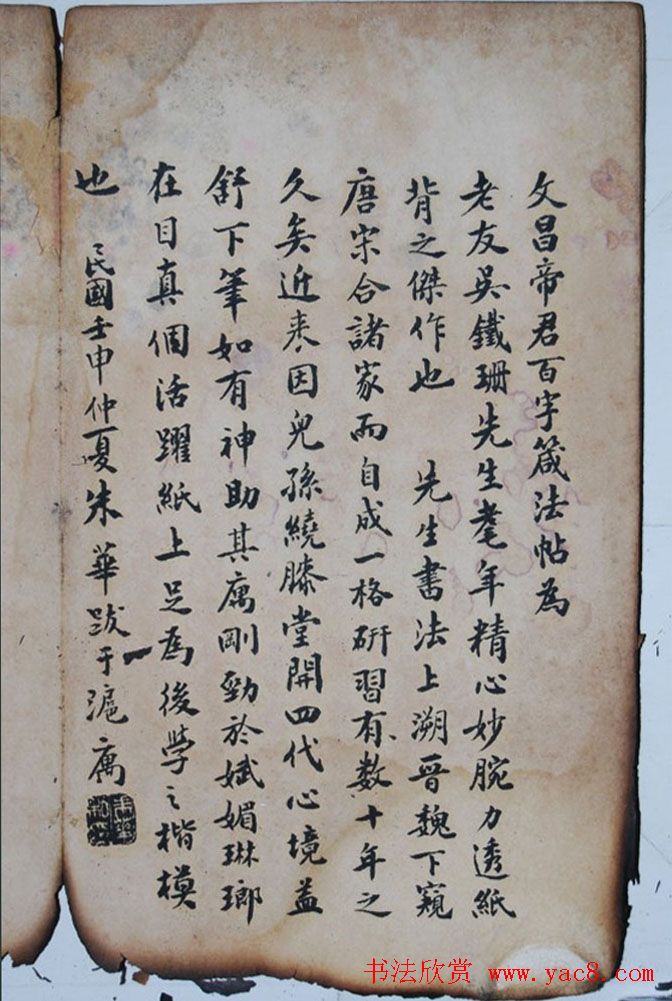 文昌帝君百字箴法帖為
老友吳鐵珊先生耄年精心妙腕力透紙
背之傑作也 先生書法上溯晉魏下窺
唐宋合諸家而自成一格研習有數十年之
久矣近來因兒孫繞膝堂開四代心境益
舒下筆如有神助其寓剛勁於嫵媚琳瑯
在目真個活躍紙上足為後學之楷模
也 民國壬申仲夏朱華跋于滬寓
书法欣赏 www.yac8.com